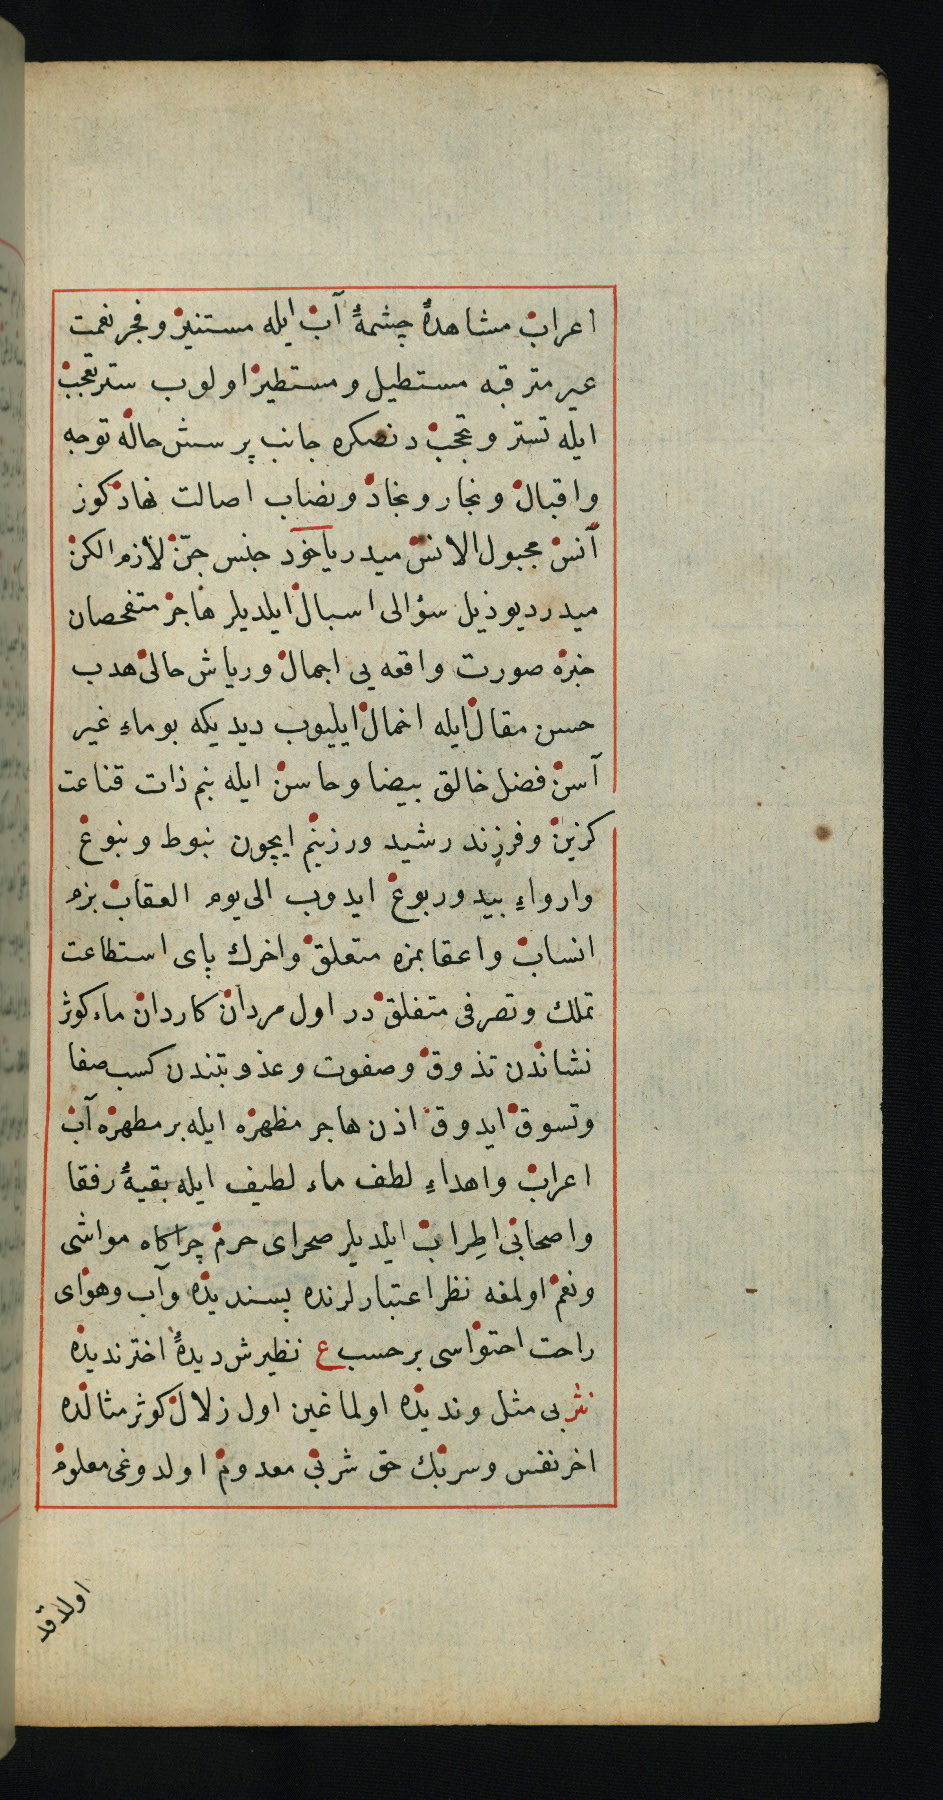 اعراب مشاهدۀ چشمۀ آب ایله مستنیر و فجر نعمت
غیر مترقبه مستطیل و مستطیر اولوب ستر تعجب
ایله تستر و تحجب دنصکره جانب پرسش حاله توجه
و اقبال و نجار و نجاد و نصاب اصالت نهاد کوز
آنس مجبول الانس میدر یاخود جنس جن لازم الکن
میدر دیو ذیل سؤالی اسبال ایلدیلر هاجر متفحصان
خبره صورت واقعه یی اجمال و ریاش حالی هدب
حسن مقال ایله اخمال ایلیوب دیدیکه بو ماء غیر
آسن فضل خالق بیضا و حاسن ایله بنم ذات قناعت
کزین و فرزند رشید ورزینم ایچون نبوط و نبوغ
وارواء بید و ربوغ ایدوب الی یوم العقاب بزم
انساب و اعقابمزه متعلق و اخرك پای استطاعت
تملك و تصرفی متفلق در اول مردان کاردان ماء کوثر
نشاندن تذوق و صفوت و عذوبتندن کسب صفا
و تسوق ایدوق اذن هاجر مظهره ایله بر مطهره آب
اعراب و اهداء لطف ماء لطیف ایله بقیۀ رفقا
و اصحابی اطراب ایلدیلر صحرای حرم چراکاه مواشی
و نعم اولمغه نظر اعتبارلرنده پسندیده و آب و هوای
راحت احتواسی بر حسب ع نظیرش دیدۀ اختر ندیده
نثر بی مثل و ندیده اولماغین اول زلال کوثر مثالده
اخر نفس و سربك حق شربی معدوم اولدوغی معلوم
اولدقد